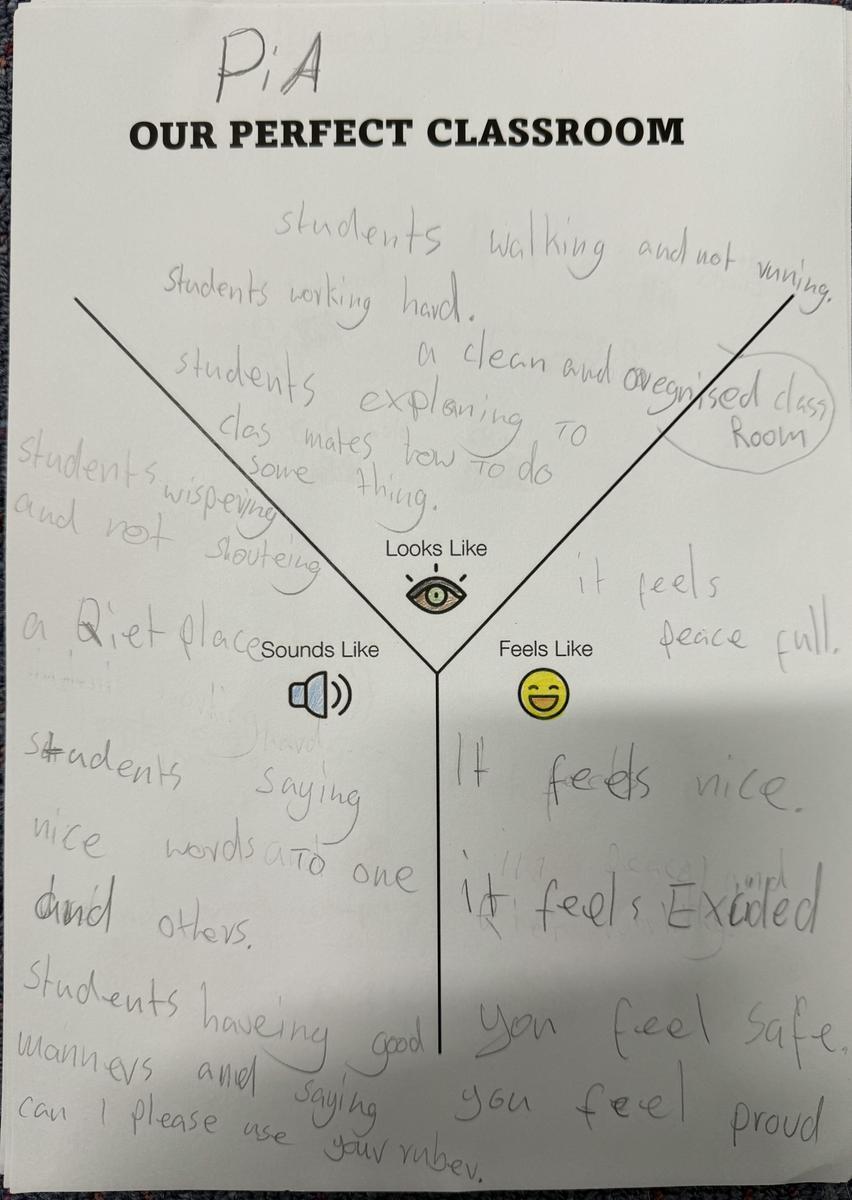 PiA
OUR PERFECT CLASSROOM
students walking and not runing.
Students working hard.
a clean and oregnised class
Room
students explaning TO
clas mates how TO do
some thing.
Looks Like
students wispering
and not shouteing
a Qiet place
Sounds Like
students saying
nice words TO one
and others.
Students haveing good
manners and saying
can I please use your ruber.
Feels Like
it feels
peace full.
It feels nice.
it feels Exided
you feel safe.
you feel proud